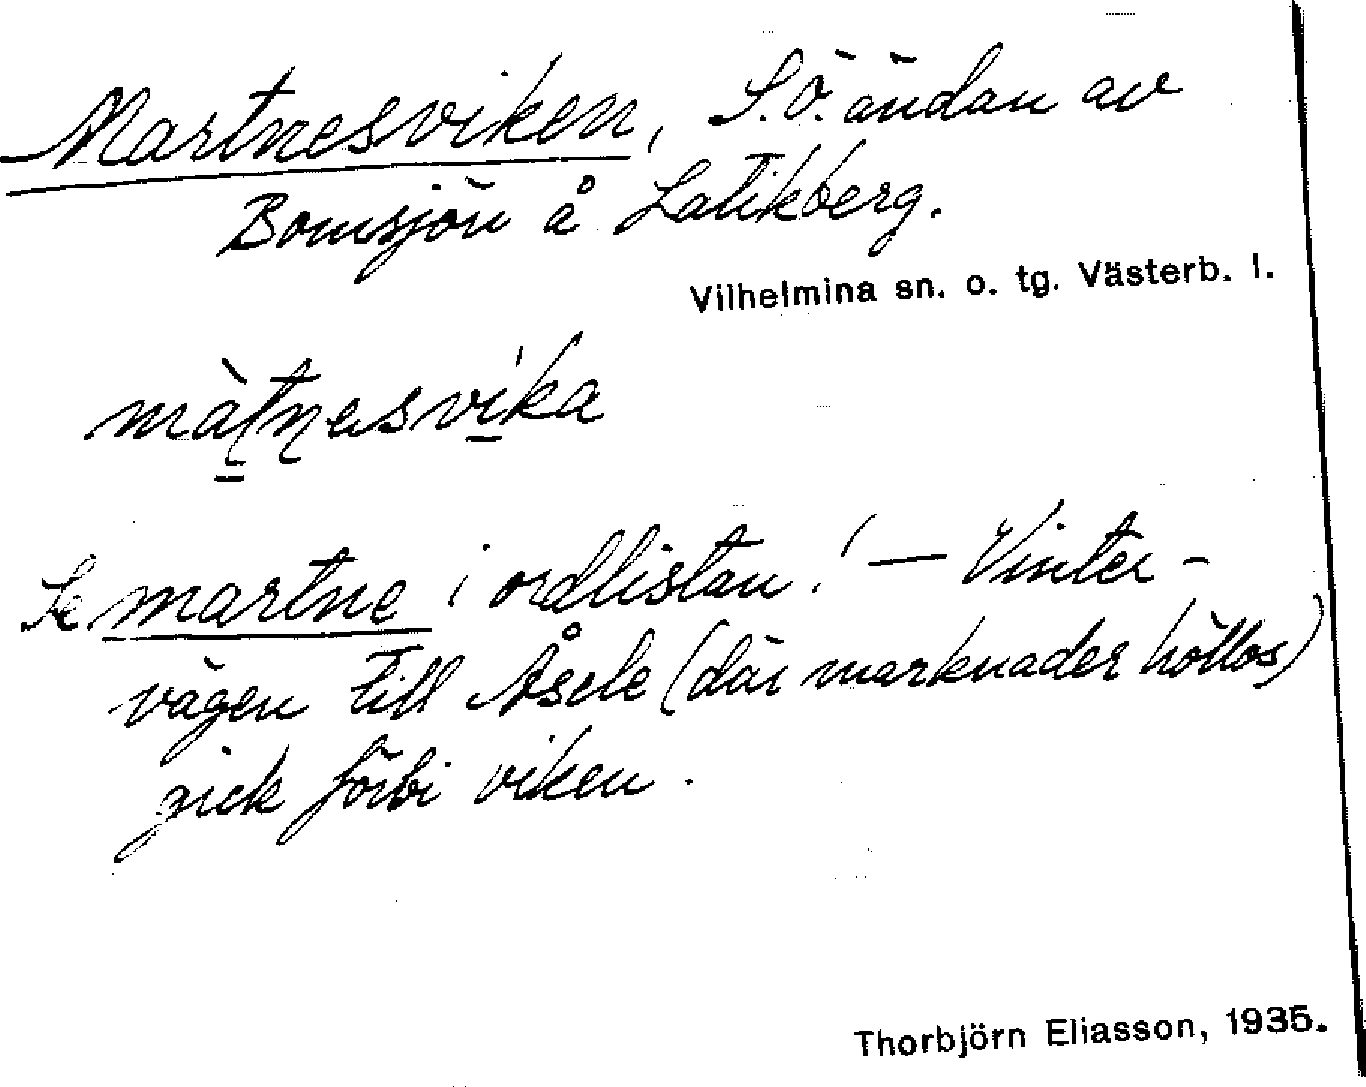 Martnesviken, S.Ö. ändan av
Bomsjön å Latikberg.
Vilhelmina sn. o. tg. Västerb. l.
màtnesvika
Se martne i ordlistan! — Vinter-
vägen till Åsele (där marknader höllos)
gick förbi viken.
Thorbjörn Eliasson, 1935.